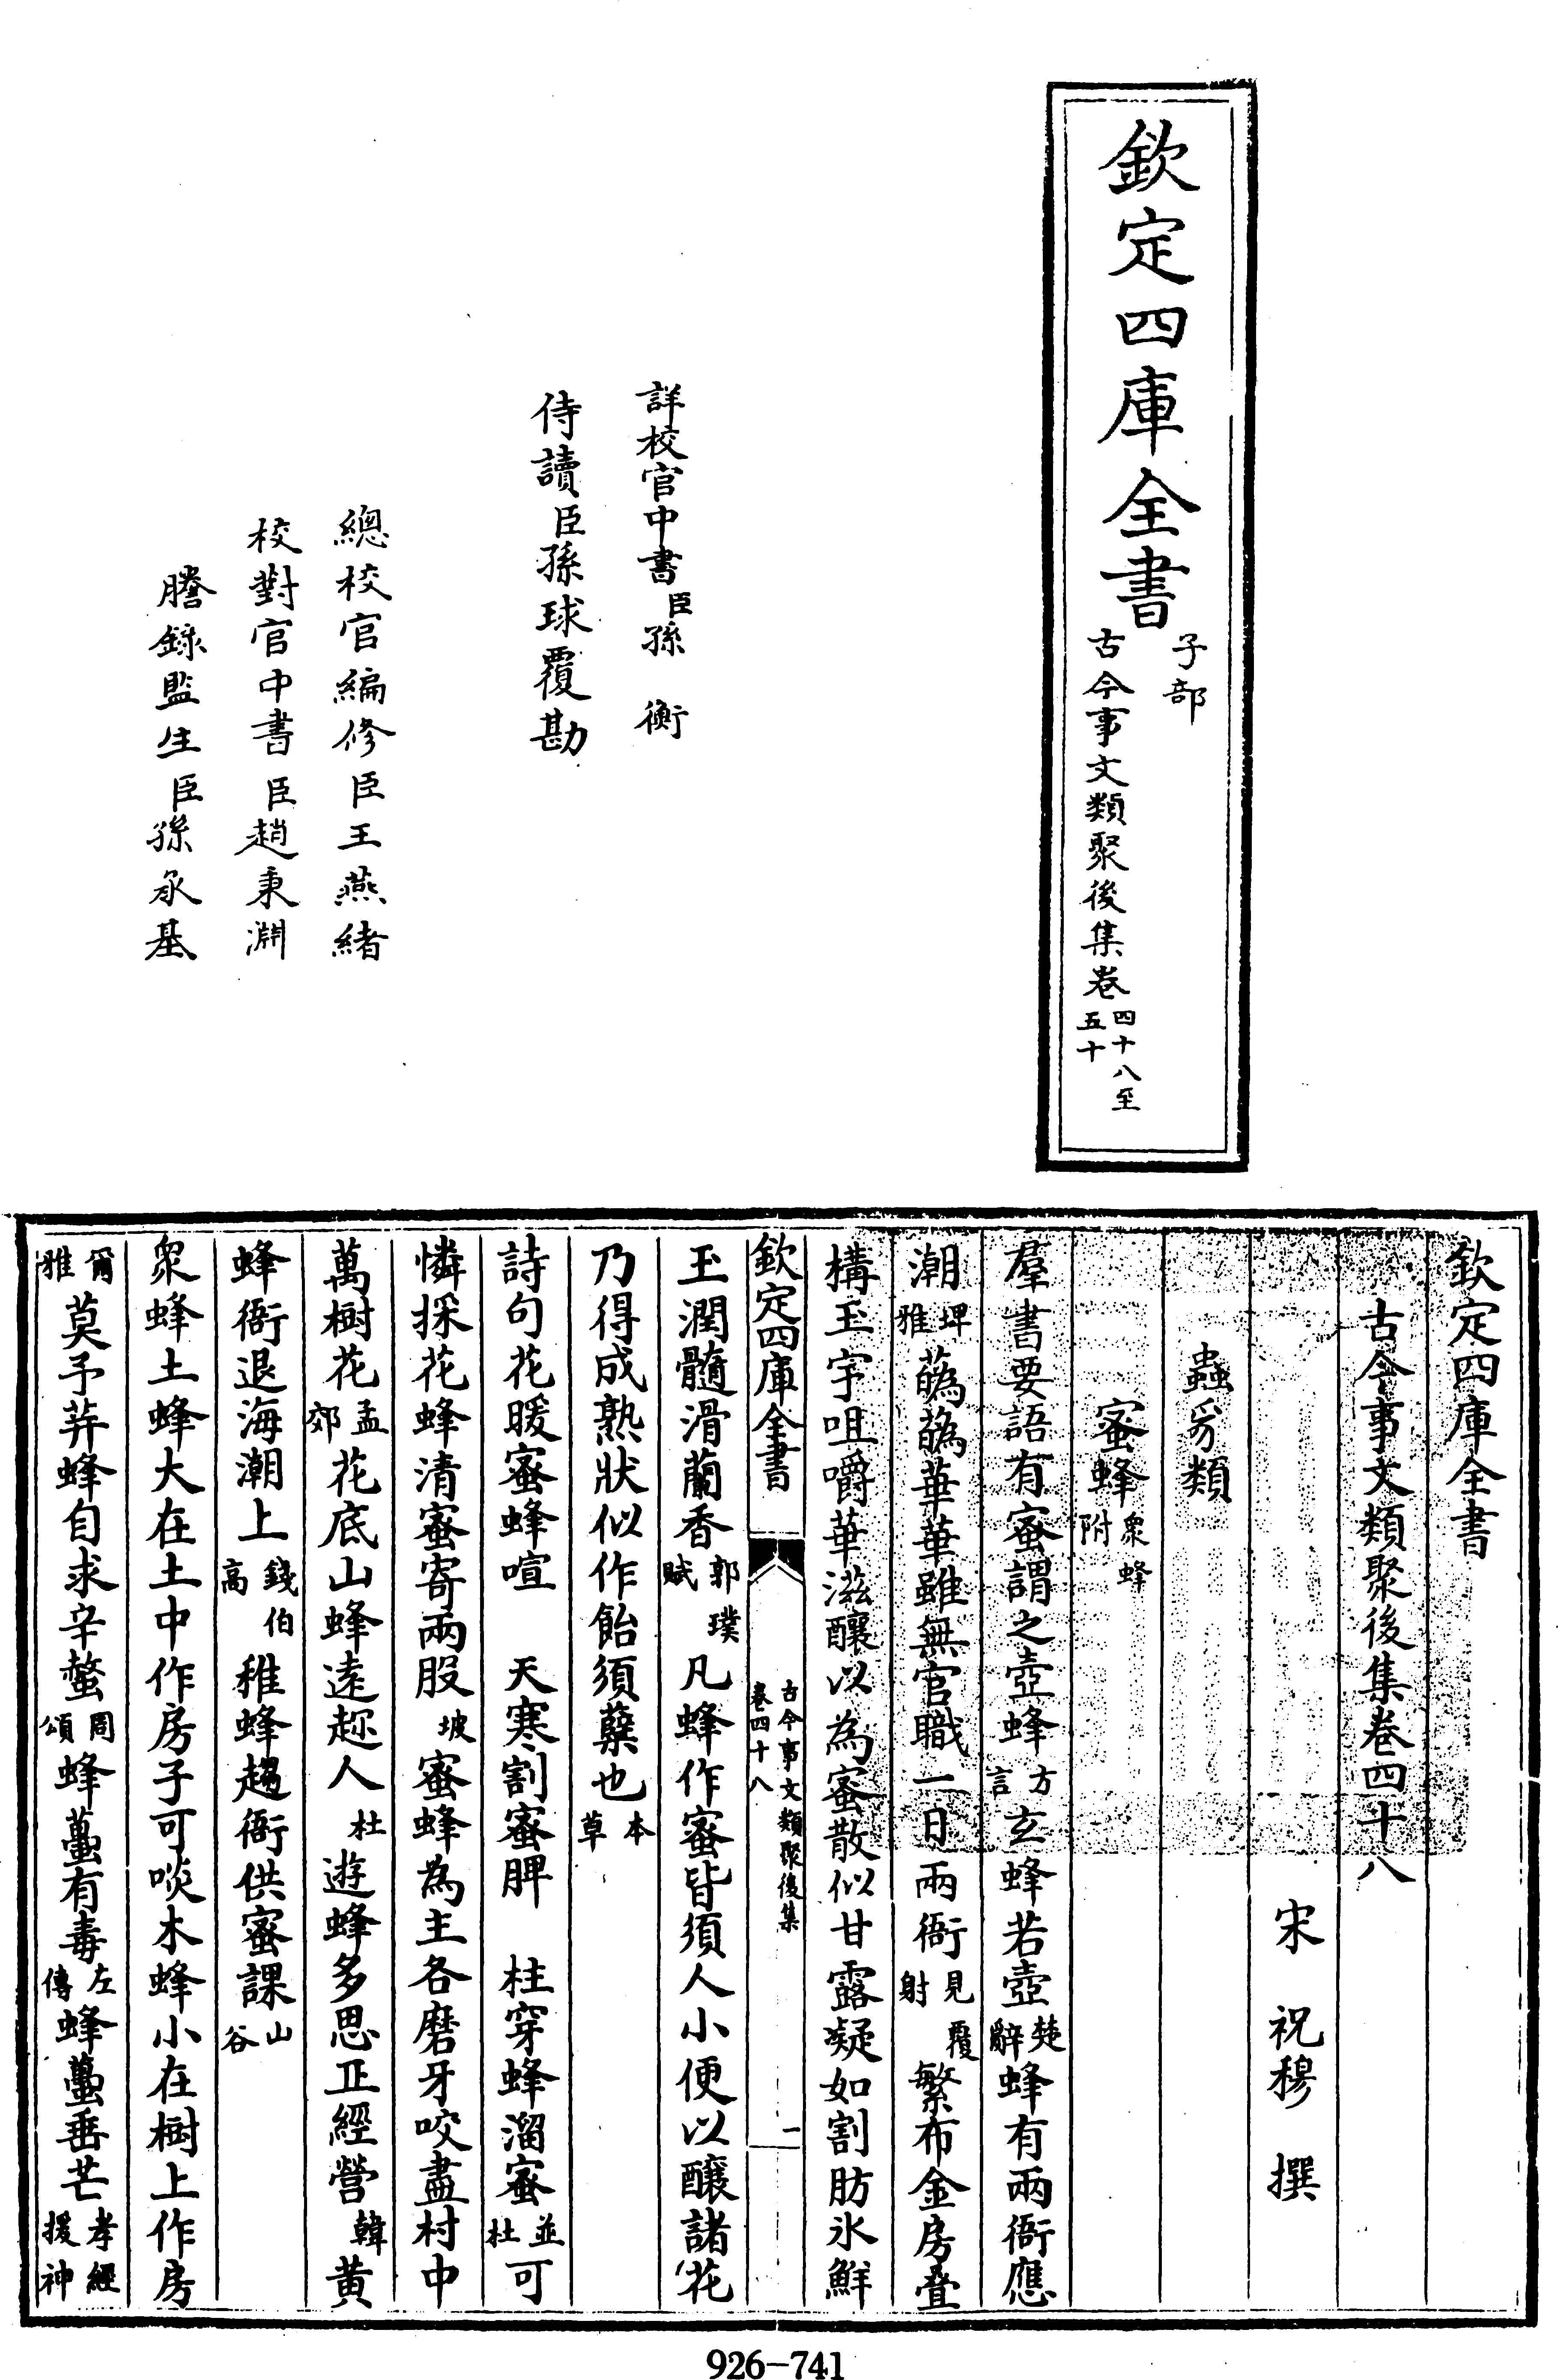 欽定四庫全書
子部
古今事文類聚後集卷四十八至五十
詳校官中書臣孫衡
侍讀臣孫球覆勘
總校官編修臣王燕緒
校對官中書臣趙秉淵
謄錄監生臣孫承基
欽定四庫全書
古今事文類聚後集卷四十八
宋 祝穆 撰
蟲豸類
蜜蜂衆蜂附
羣書要語有蜜謂之壺蜂方言玄蜂若壺楚辭蜂有兩衙應
潮埤雅蘤蘤華華雖無官職一日兩衙見射覆繁布金房疊
構玉宇咀嚼華滋釀以為蜜散似甘露凝如割肪氷鮮
欽定四庫全書
古今事文類聚後集
卷四十八
一
玉潤髓滑蘭香郭璞賦凡蜂作蜜皆須人小便以釀諸花
乃得成熟狀似作飴須蘖也本草
詩句花暖蜜蜂喧 天寒割蜜脾 柱穿蜂溜蜜並杜可
憐採花蜂清蜜寄兩股坡蜜蜂為主各磨牙咬盡村中
萬樹花孟郊花底山蜂遠趂人杜遊蜂多思正經營韓黄
蜂衙退海潮上錢伯高稚蜂趨衙供蜜課山谷
衆蜂土蜂大在土中作房子可啖木蜂小在樹上作房
爾雅莫予荓蜂自求辛螫周頌蜂蠆有毒左傳蜂蠆垂芒孝經援神
926-741